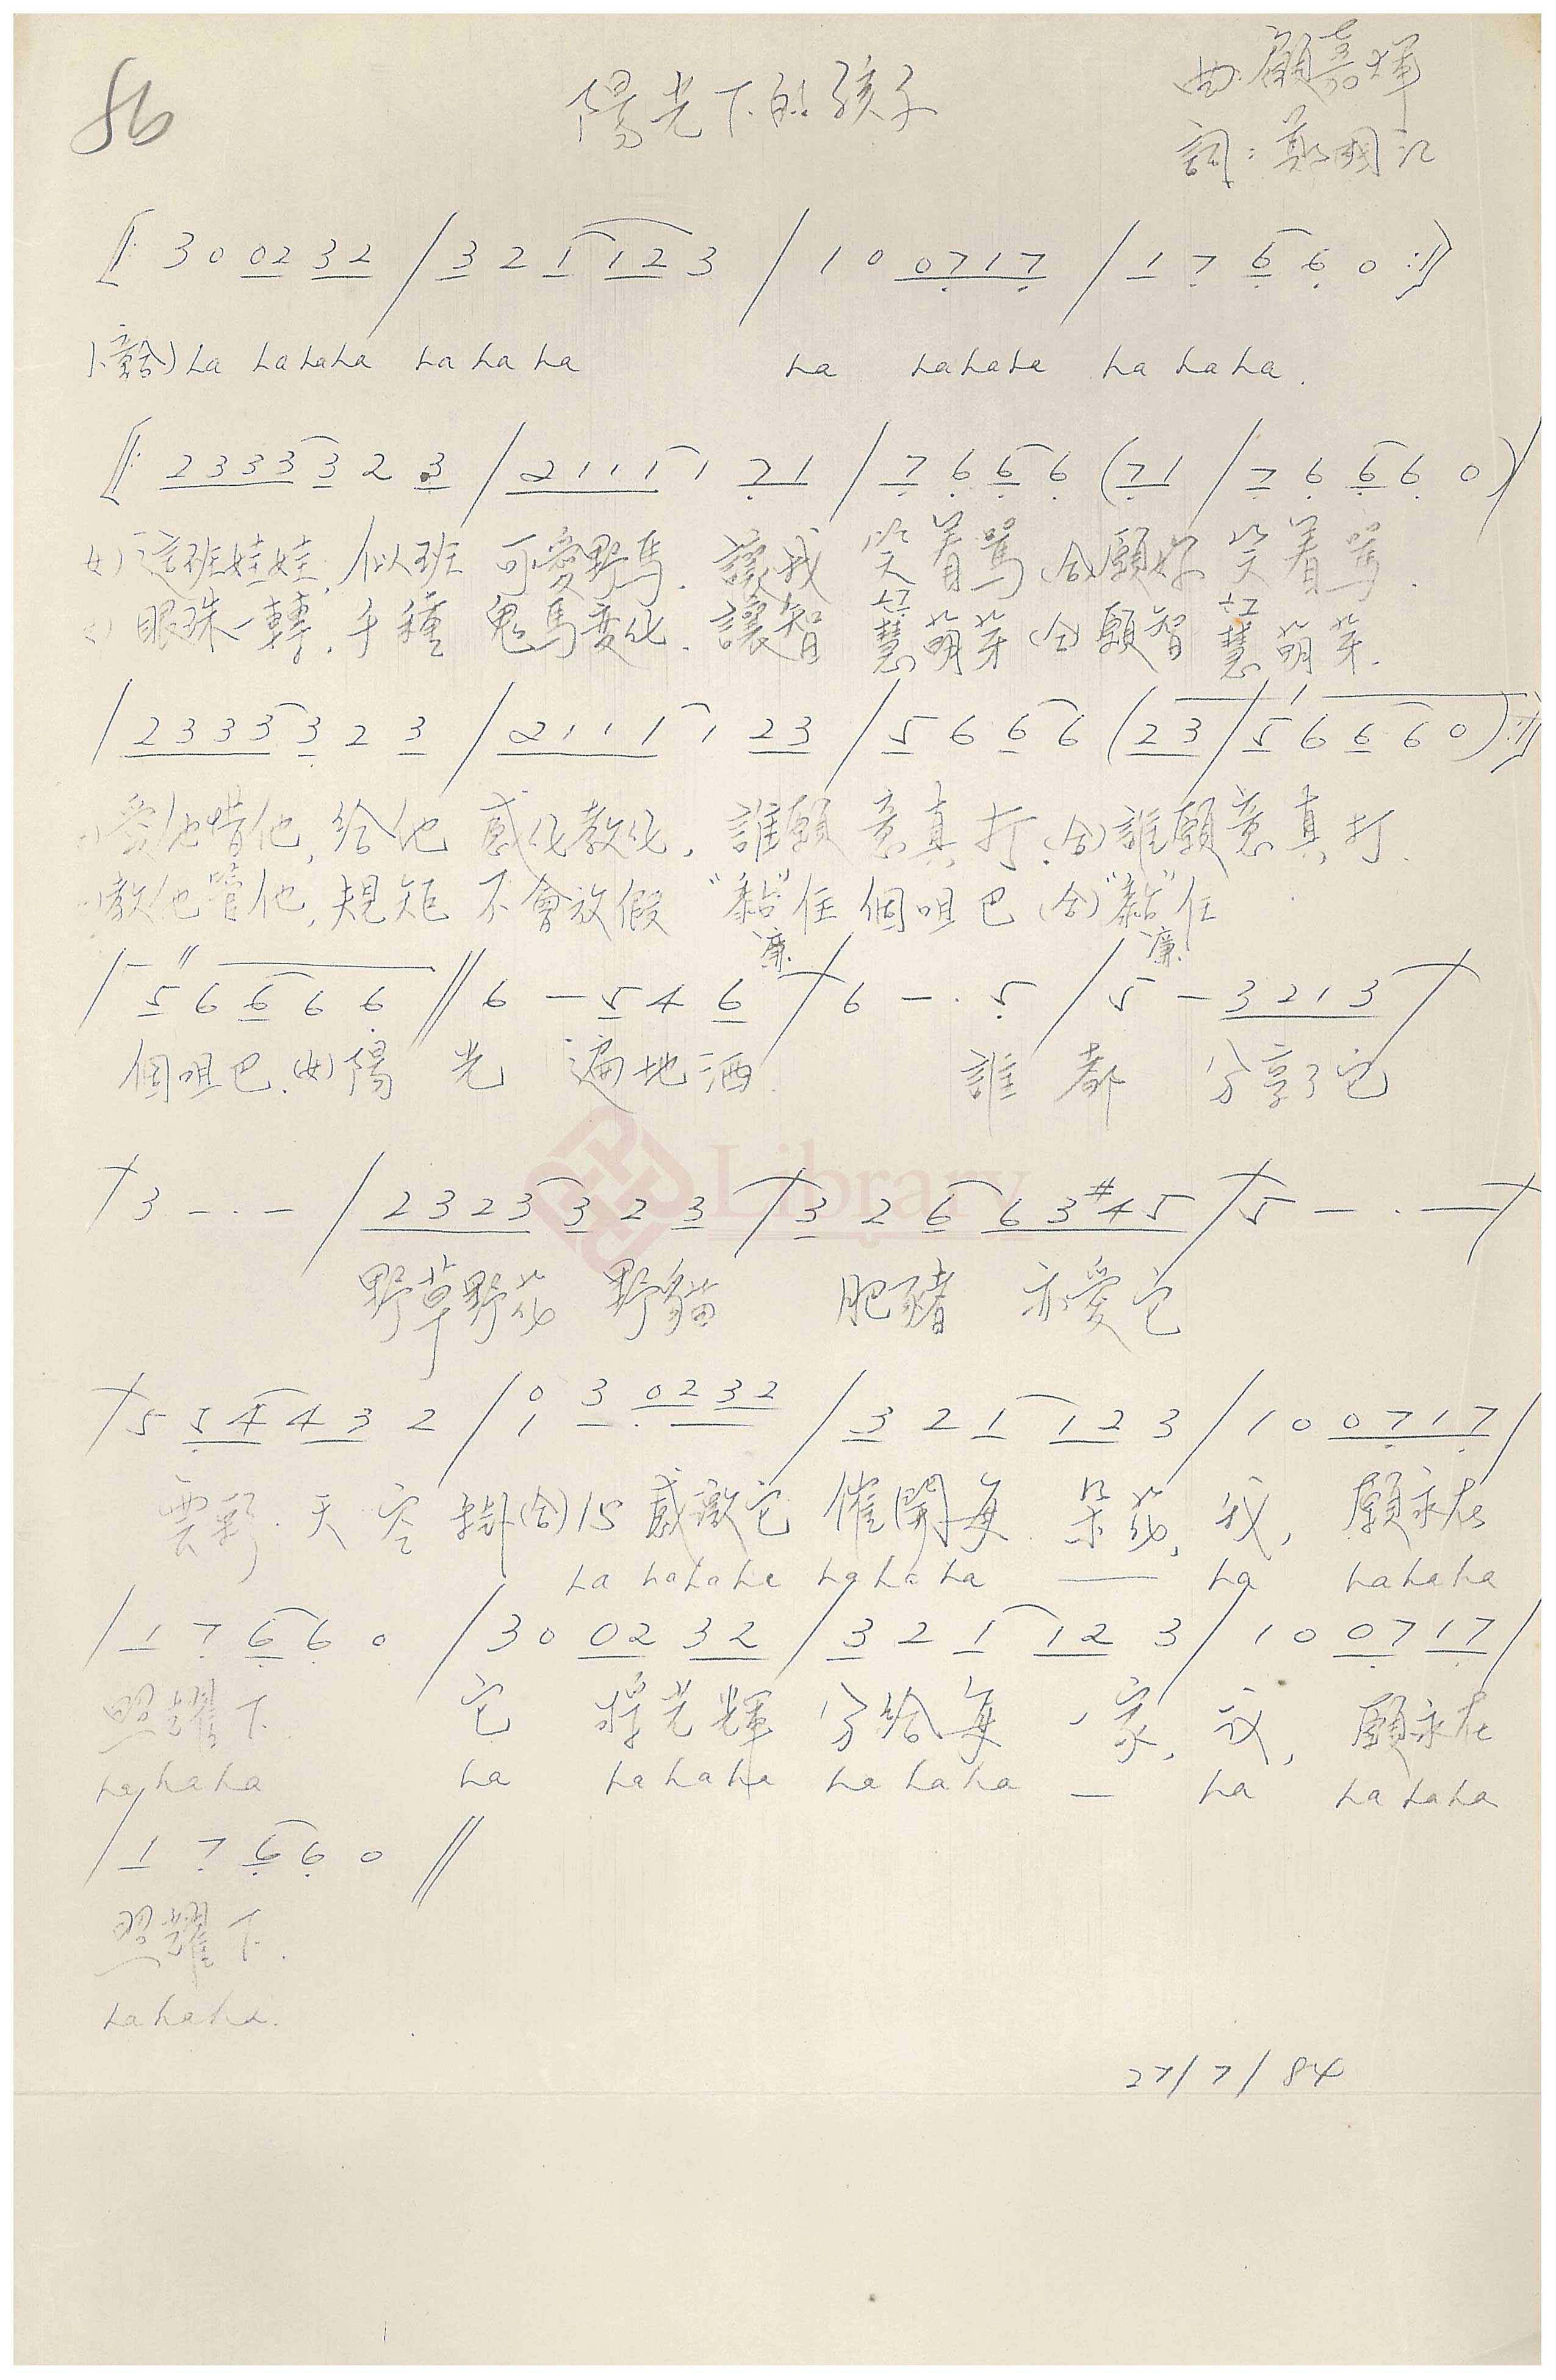 86
陽光下的孩子
曲:顧嘉煇
詞:鄭國江
‖: 3 0 02 32 / 3 2 1 12 3 / 1 0 0717 / 1 7 6 6 0 :‖
(童合) La LaLaLa La La La La LaLaLa La La La.
‖: 2333 3 2 3 / 2111 1 71 / 7 6 6 6 (71 / 7 6 6 6 0) /
女) 這班娃娃, 似班 可愛野馬. 讓我 笑着罵 (合)願你 笑着罵.
眼珠一轉, 千種 鬼馬變化. 讓智慧萌芽 (合)願智慧萌芽.
/ 2333 3 2 3 / 2111 1 23 / 5 6 6 6 (23 / 5 6 6 6 0) :‖
愛他惜他, 給他 感化教化. 誰願意真打. (合)誰願意真打.
教他管他, 規矩 不會放假 "黏"住個咀巴 (合)"黏"住
廉 廉
/ 5 6 6 6 6 // 6 – 5 4 6 / 6 – · 5 / 5 – 3213 /
個咀巴. (女)陽 光 遍地洒. 誰 都 分享了它
/ 3 – · – / 2323 3 2 3 / 3 2 6 6 3 #4 5 / 5 – · – /
野草野花 野貓 肥豬 亦愛它
/ 5 54 43 2 / 0 1 3 02 32 / 3 2 1 12 3 / 1 0 0717 /
雲彩 天空掛 (合) 感激它 催開每 朵花, 我, 願永在
La LaLaLa LaLaLa — La LaLaLa
/ 1 7 6 6 0 / 3 0 02 32 / 3 2 1 12 3 / 1 0 07 17 /
照耀下 它 將光輝 分給每 一家, 我, 願永在
LaLaLa La LaLaLa La La La — La LaLaLa
/ 1 7 6 6 0 //
照耀下.
LaLaLa.
27/7/84
Library